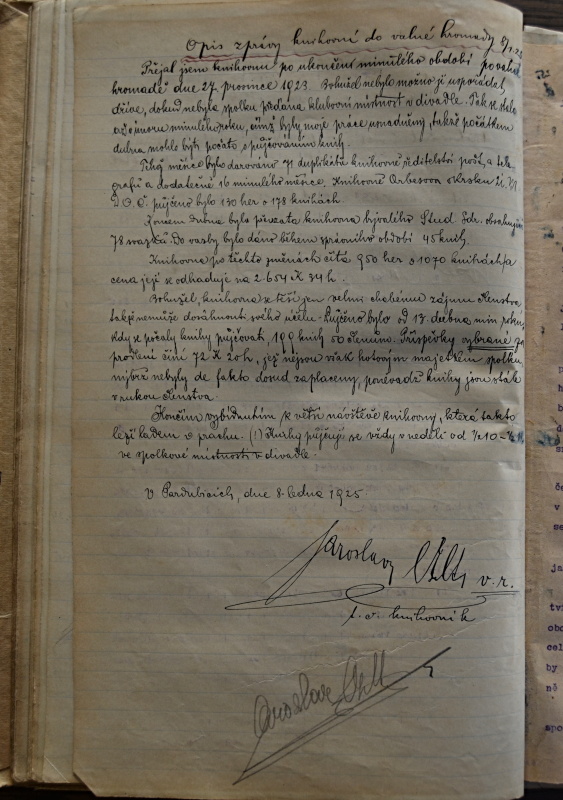 Opis zprávy knihovní do valné hromady 8/1.25
Přejal jsem knihovnu po ukončení minulého období po valné
hromadě dne 27. prosince 1923. Bohužel nebylo možno ji uspořádati
dříve, dokud nebyla spolku předána klubovní místnost v divadle. Tak se stalo
až v únoru minulého roku, čímž byly moje práce usnadněny, takže počátkem
dubna mohlo býti počato s půjčováním knih.
Téhož měsíce bylo darováno 71 duplikátů knihovně ředitelství pošt a tele
grafů a dodatečně 16 minulého měsíce. Knihovně Orbesova okrsku
D.O.Č. půjčeno bylo 130 her o 178 knihách.
Koncem dubna byla převzata knihovna bývalého Stud. sdr. obsahující
78 svazků. Do vazby bylo dáno během správního období 45 knih.
Knihovna po těchto změnách čítá 950 her o 1070 knihách a
cena její se odhaduje na 2.654 K 34 h.
Bohužel, knihovna se těší jen velmi chabému zájmu členstva
takže nemůže dosáhnouti svého účelu. Půjčeno bylo od 13. dubna min. roku,
kdy se počaly knihy půjčovati, 199 knih 50 členům. Příspěvky vybrané za
prodlení činí 72 K 20 h, jež nejsou však hotovým majetkem spolku
nýbrž nebyly de fakto dosud zaplaceny, poněvadž knihy jsou stále
v rukou členstva.
Končím vybídnutím k větší návštěvě knihovny, která takto
leží ladem v prachu. (!) Knihy půjčují se vždy v neděli od ½10 – ½
ve spolkové místnosti v divadle.
V Pardubicích, dne 8. ledna 1925
Jaroslav v. r.
t. č. knihovník
Jaroslav